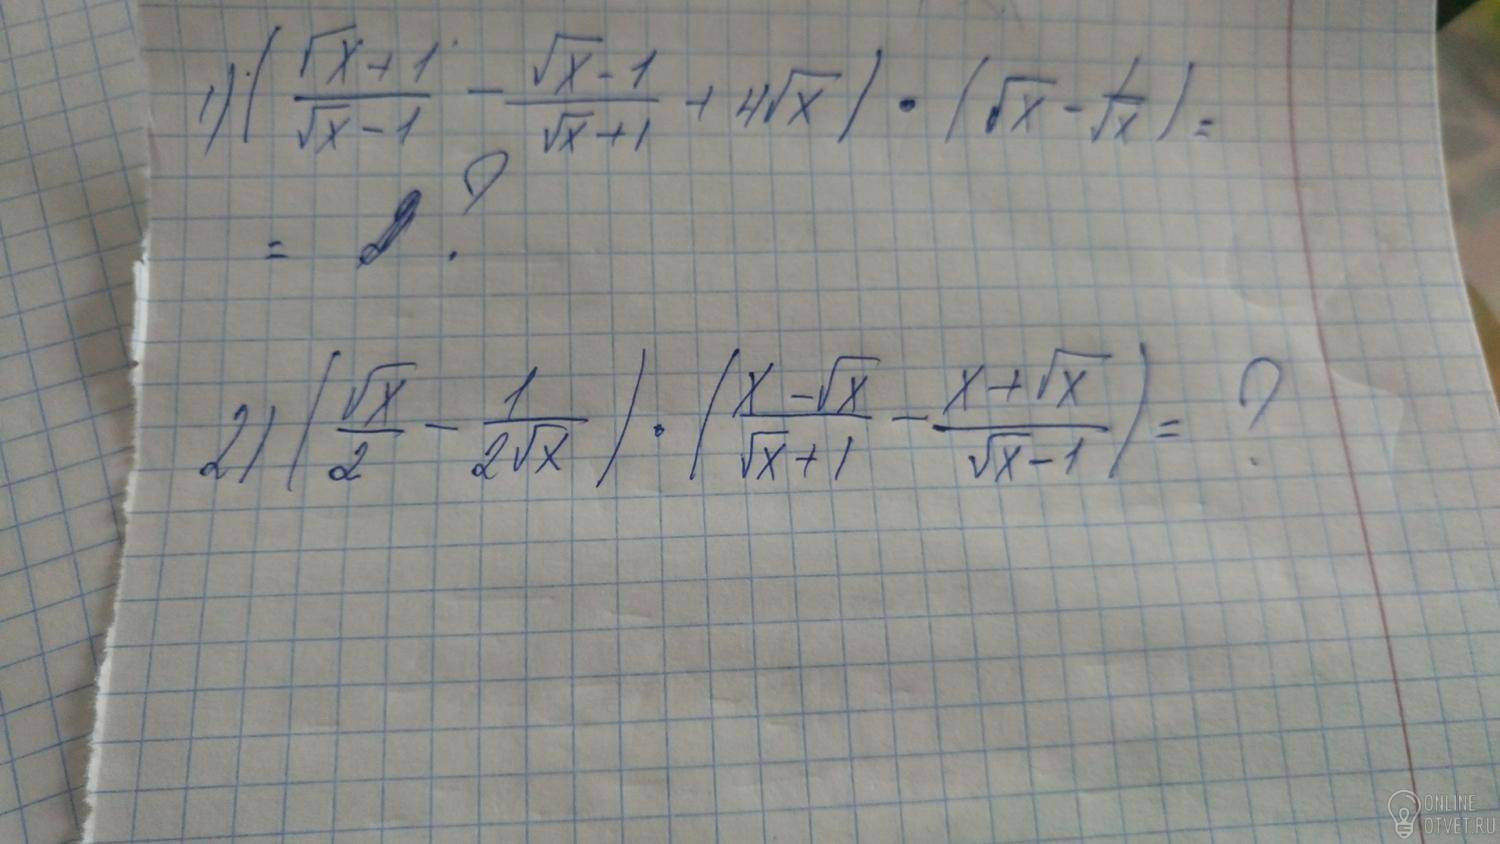 1) ( (√x+1)/(√x-1) - (√x-1)/(√x+1) + 4√x ) • ( √x - 1/√x ) =
= ?
2) ( √x/2 - 1/(2√x) ) • ( (x-√x)/(√x+1) - (x+√x)/(√x-1) ) = ?
ONLINE
OTVET.RU